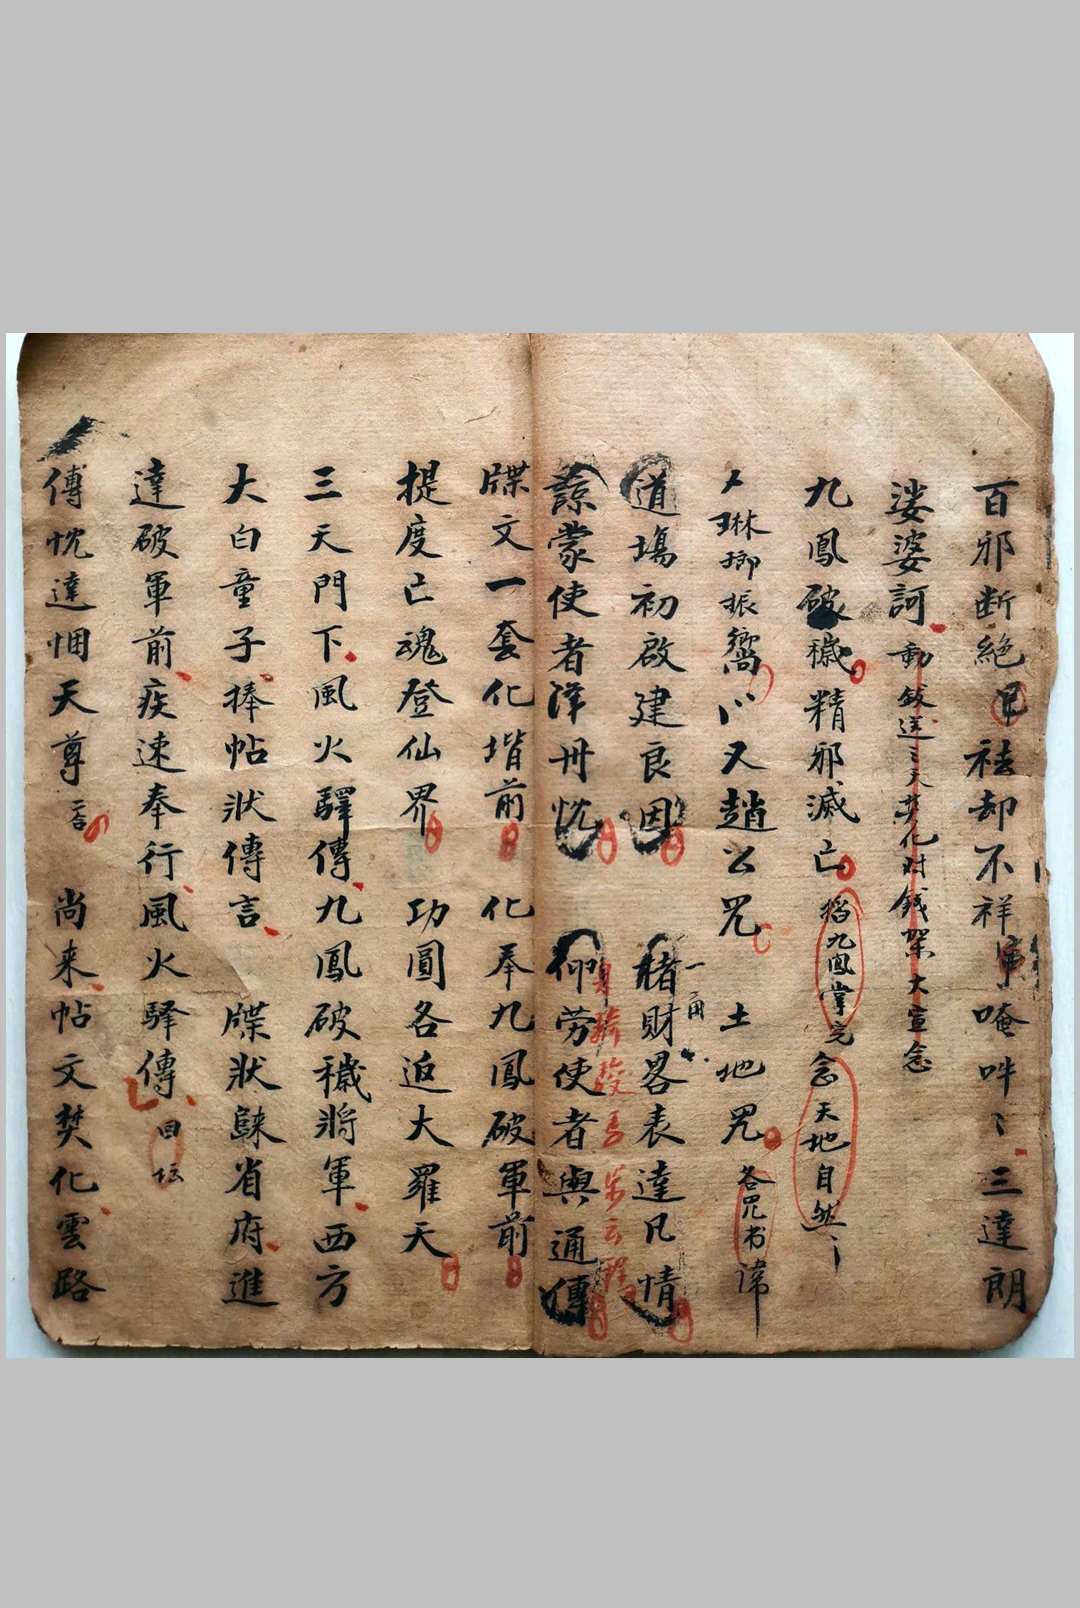 百邪断絕 祛却不祥 唵吽〻三達朗
娑婆訶 動鈸送〻天焚化財錢架大宣念
九鳳破穢精邪滅亡 掐九鳳掌完 念天地自然〻
琳瑯振嚮 又趙公咒 土地咒 各咒书諱
道塲初啟建良因 賭財畧表達凡情
諒蒙使者洋冊忱 仰勞使者與通傳
牒文一套化堦前 化奉九鳳破軍前
提度亡魂登仙界 功圓各返大羅天
三天門下風火驛傳九鳳破穢將軍西方
大白童子捧帖狀傳言 牒狀隸省府進
達破軍前疾速奉行風火驛傳 回坛
傳忱達悃天尊 尚来帖文焚化雲路